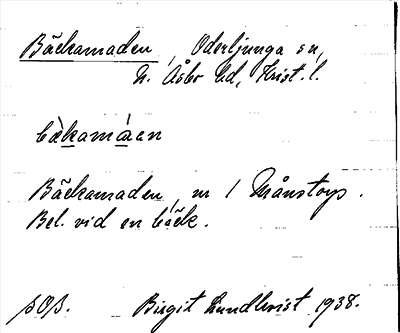 Bäckamaden, Oderljunga sn,
N. Åsbo hd, Krist. l.
bàkamáen
Bäckamaden, nr 1 Månstorp.
Bel. vid en bäck.
Birgit Lundkvist 1938.